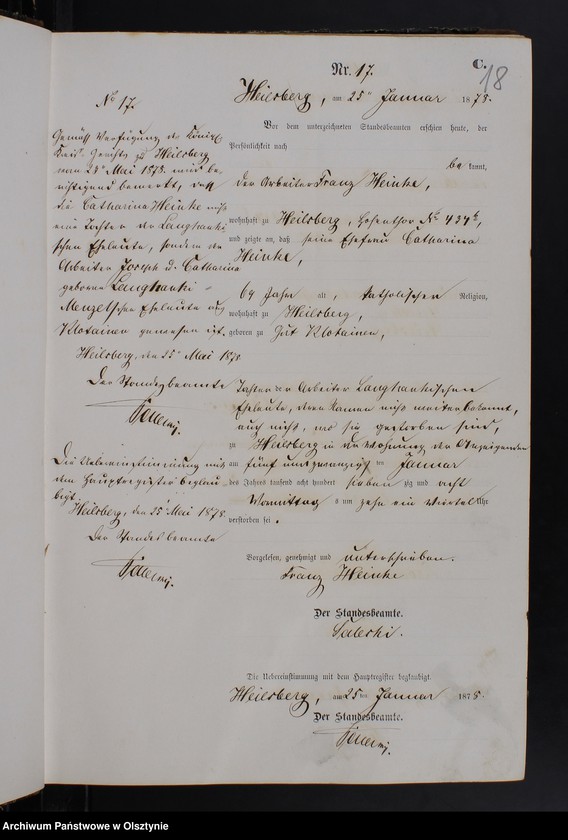 C.
18
Nr. 17.
Heilsberg, am 25ten Januar 1878.
Vor dem unterzeichneten Standesbeamten erschien heute, der
Persönlichkeit nach
bekannt,
der Arbeiter Franz Heinke,
wohnhaft zu Heilsberg, Hohenthor No 434b,
und zeigte an, daß seine Ehefrau Catharina
Heinke,
69 Jahr alt, katholischen Religion,
wohnhaft zu Heilsberg,
geboren zu Gut Klotainen,
Tochter der Arbeiter Langhankischen
Eheleute, deren Namen nicht weiter bekannt,
auch nicht, wo sie gestorben sind,
zu Heilsberg in der Wohnung des Anzeigenden
am fünf und zwanzigsten Januar
des Jahres tausend acht hundert siebenzig und acht
Vormittags um zehn ein viertel Uhr
verstorben sei.
Vorgelesen, genehmigt und unterschrieben.
Franz Heinke
Der Standesbeamte.
Die Uebereinstimmung mit dem Hauptregister beglaubigt.
Heilsberg, am 25ten Januar 1878.
Der Standesbeamte.
No 17.
Gemäß Verfügung des Königl.
Kreis-Gerichts zu Heilsberg
vom Mai 1878 wird be-
richtigend bemerkt, daß
die Catharina Heinke nicht
eine Tochter der Langhanki-
schen Eheleute, sondern der
Arbeiter Joseph u. Catharina
geborne Langhanki-
Menzelschen Eheleute aus
Klotainen gewesen ist.
Heilsberg, den 25ten Mai 1878.
Der Standesbeamte
Die Uebereinstimmung mit
dem Hauptregister beglau-
bigt.
Heilsberg, den 25 Mai 1878.
Der Standesbeamte
Archiwum Państwowe w Olsztynie